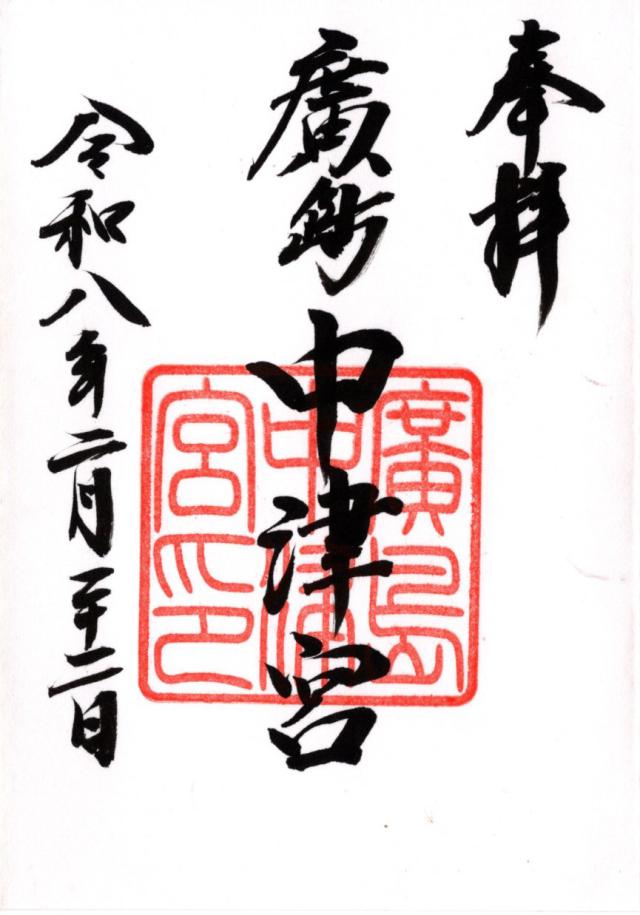 奉拝
廣嶋中津宮
令和八年二月二十二日
廣島
中津
宮印